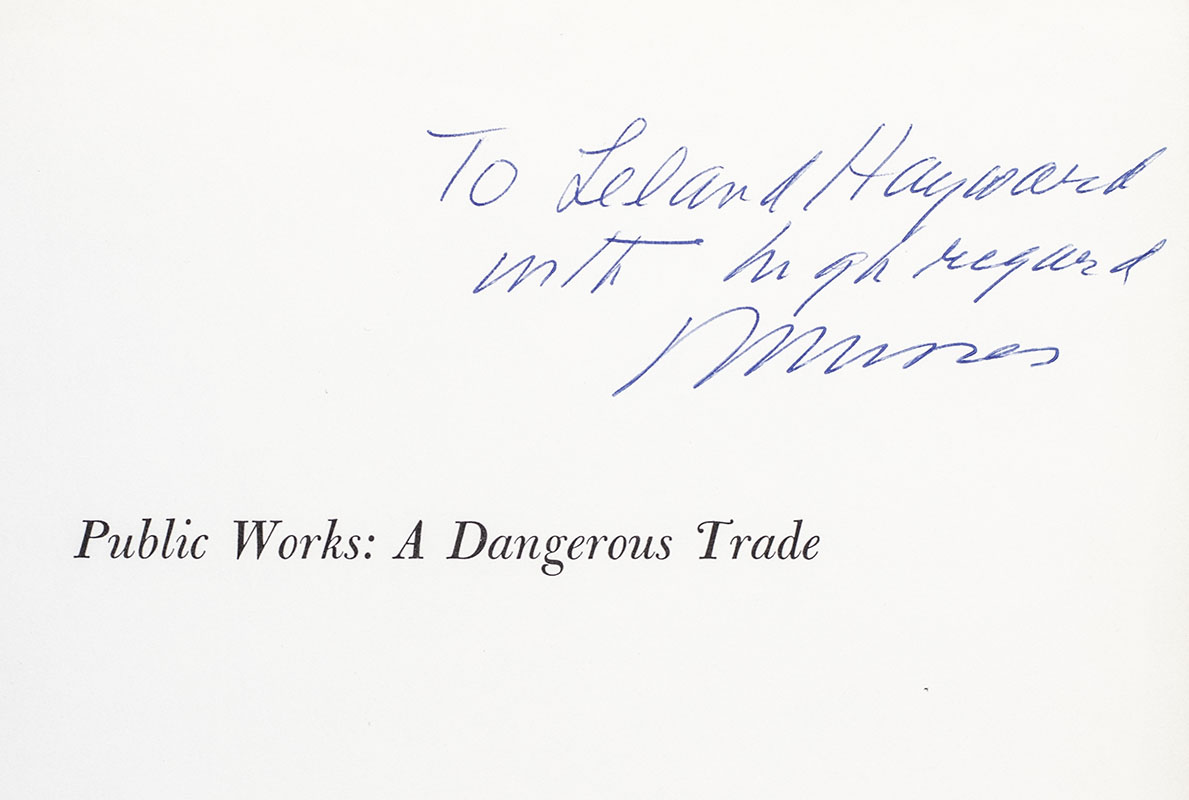 To Leland Hayward
with high regard
RMoses
Public Works: A Dangerous Trade